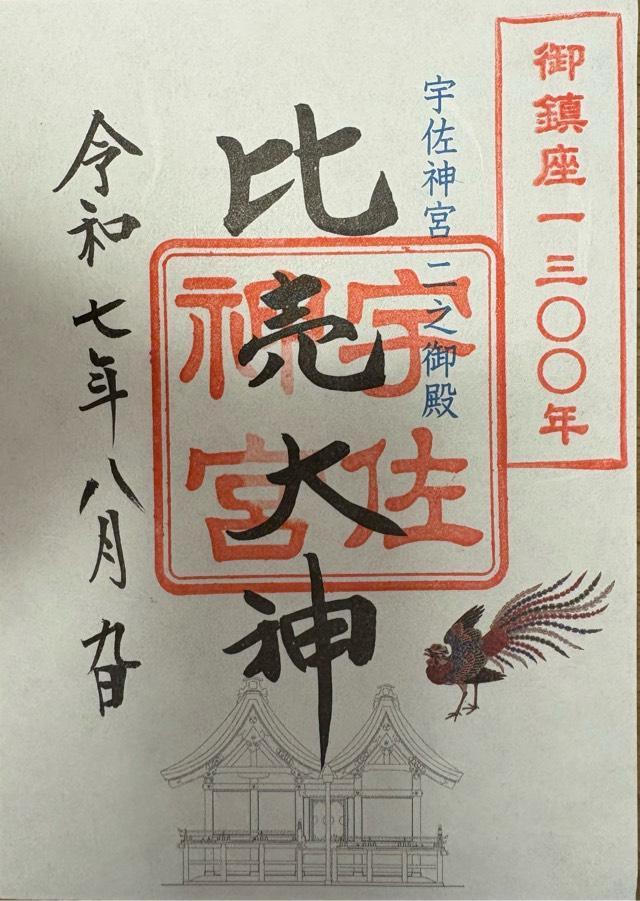 御鎮座一三〇〇年
宇佐神宮 二之御殿
比売大神
宇佐
神宮
令和七年八月九日